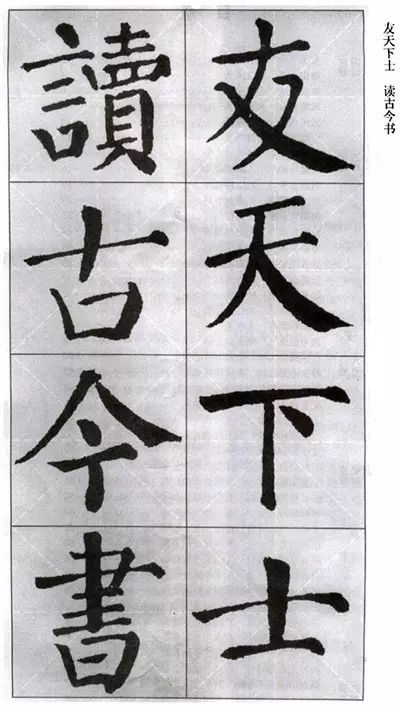 友天下士 读古今书
友天下士
讀古今書